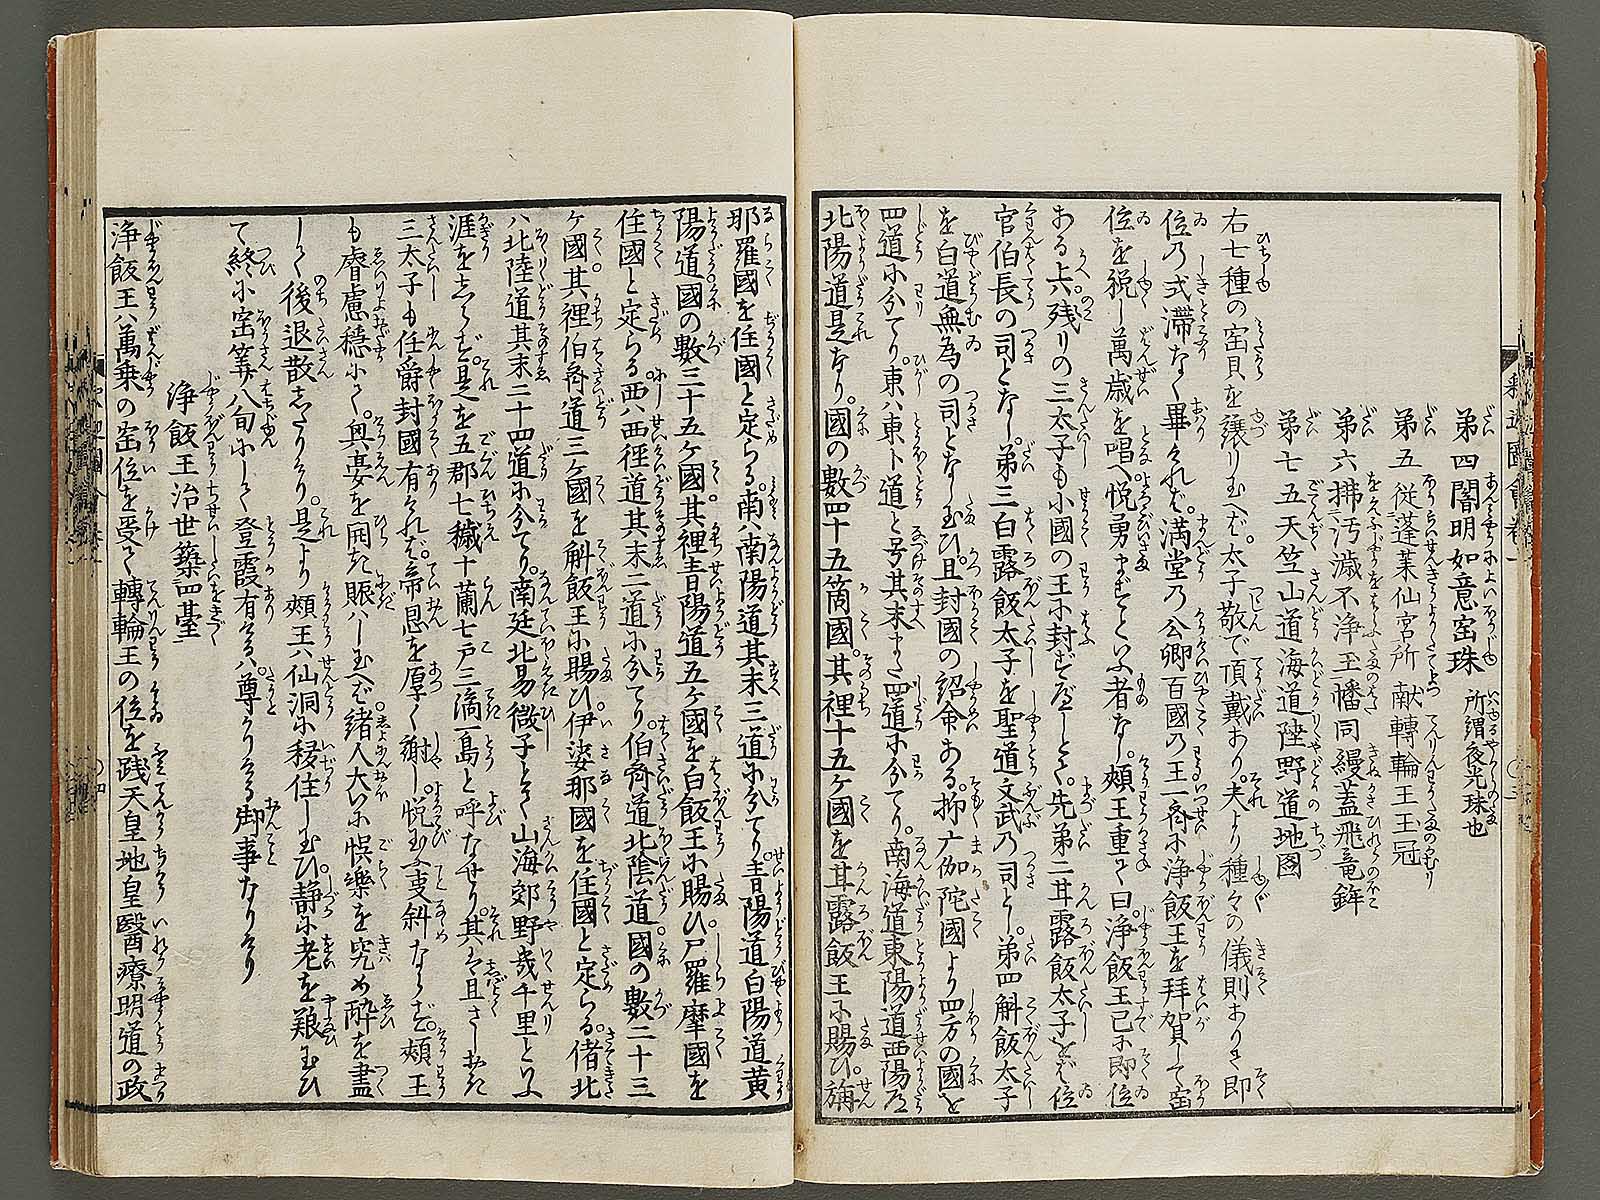 第四闇明如意宝珠 所謂夜光珠也
第五従蓬莱仙宮所献轉輪王玉冠
第六拂汚濊不浄玉幡同縵蓋飛竜鉾
第七五天竺山道海道陸野道地國
右七種の宝貝を譲り玉へば。太子敬で頂戴おり。夫より種々の儀則ありき即
位乃式滞なく畢られば。満堂乃公卿百國乃王一斉に浄飯王を拜賀して宝
位を祝し萬歳を唱へ悦勇まずといふ者なし。頗王重て曰浄飯王已に即位
ある上八残りの三太子も小國の王に封ずべしとて。先弟二甘露飯太子をば位
官伯長の司となし。弟三白露飯太子を聖道文武乃司とし。弟四斛飯太子
を白道無為の司となし玉ひ。且封國の詔命ある。抑广伽陀國より四方の國を
四道に分てり。東八東卜道と号其末また四道に分てり。南海道東陽道西陽道
北陽道是なり。國の數四十五箇國。其裡十五ケ國を甘露飯王に賜ひ旃
那羅國を住國と定らる。南八南陽道其末三道に分てり。青陽道白陽道黄
陽道。國の數三十五ケ國。其裡青陽道五ケ國を白飯王に賜ひ。尸羅摩國を
住國と定らる。西八西徑道其末二道に分てり。伯斉道北陰道。國の數二十三
ケ國。其裡伯斉道三ケ國を斛飯王に賜ひ伊婆那國を住國と定らる。偖北
八北陸道其末二十四道に分てり。南廷北易微子とて山海郊野幾千里といふ
涯をしらず。是を五郡七穢十蘭七戸三滴一島と呼なせり。其は且さしおき
三太子も任爵封國有ければ。帝恩を厚く謝し悦玉ふ叓斜ならず。頗王
も睿慮穏にて。奥宴を開き賑はし玉へば。緒人大に悞樂を究め酔を盡
して後退散したりけり。是より頗王八仙洞に移住し玉ひ静に老を養玉ひ
て終に宝筭八旬にして登霞有ける八尊かりける御事なりけり
浄飯王治世築四臺
浄飯王八萬乗の宝位を受て轉輪王の位を践天皇地皇醫療明道の政